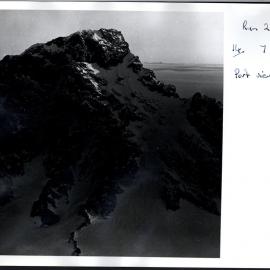 Run 2
Hgr 7
Port view